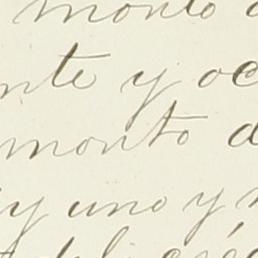 monto
nte y oc
monto d
y uno y m